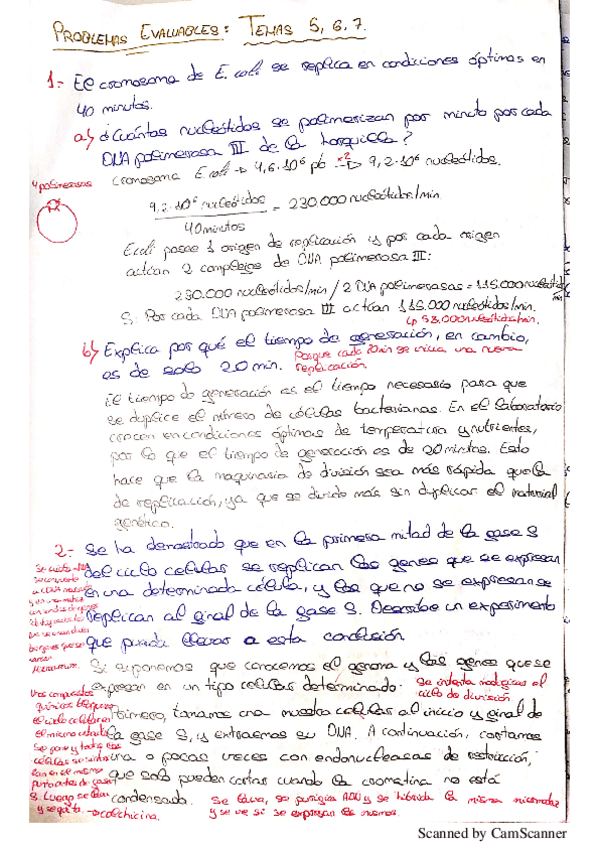 PROBLEMAS EVALUABLES: TEMAS 5, 6, 7.
1.- El cromosoma de E. coli se replica en condiciones óptimas en
40 minutos.
a) ¿Cuántos nucleótidos se polimerizan por minuto por cada
DNA polimerasa III de la horquilla?
Cromosoma E coli → 4,6·10⁶ pb x2→ 9,2·10⁶ nucleótidos.
4 polimerasas
9,2·10⁶ nucleótidos / 40 minutos = 230.000 nucleótidos/min
E coli posee 1 origen de replicación y por cada origen
actúan 2 complejos de DNA polimerasa III:
230.000 nucleótidos/min / 2 DNA polimerasas = 115.000 nucleótid
S. Por cada DNA polimerasa III actúan 115.000 nucleótidos/min.
nucleótidos/min.
b) Explica por qué el tiempo de generación, en cambio,
es de solo 20 min. Porque cada 20min se inicia una nueva
replicación.
El tiempo de generación es el tiempo necesario para que
se duplice el número de células bacterianas. En el laboratorio
crecen en condiciones óptimas de temperatura y nutrientes,
por lo que el tiempo de generación es de 20 minutos. Esto
hace que la maquinaria de división sea más rápida que la
de replicación, ya que se divide más sin duplicar el material
genético.
2.- Se ha demostrado que en la primera mitad de la fase S
del ciclo celular se replican los genes que se expresan
en una determinada célula, y los que no se expresan se
replican al final de la fase S. Describe un experimento
que pueda llevar a esta conclusión
Si suponemos que conocemos el genoma y los genes que se
expresan en un tipo celular determinado. Se intenta
ciclo de división
Primero, tomamos una muestra celular al inicio y final de
la fase S, y extraemos su DNA. A continuación, cortamos
una o pocas veces con endonucleasas de restricción,
que solo pueden cortar cuando la cromatina no está
condensada. Se lava, se purifica ADN y se hibrida la misma
y se ve si se expresan los mismos.
químicos
el ciclo celular en
→ colchicina.
Scanned by CamScanner